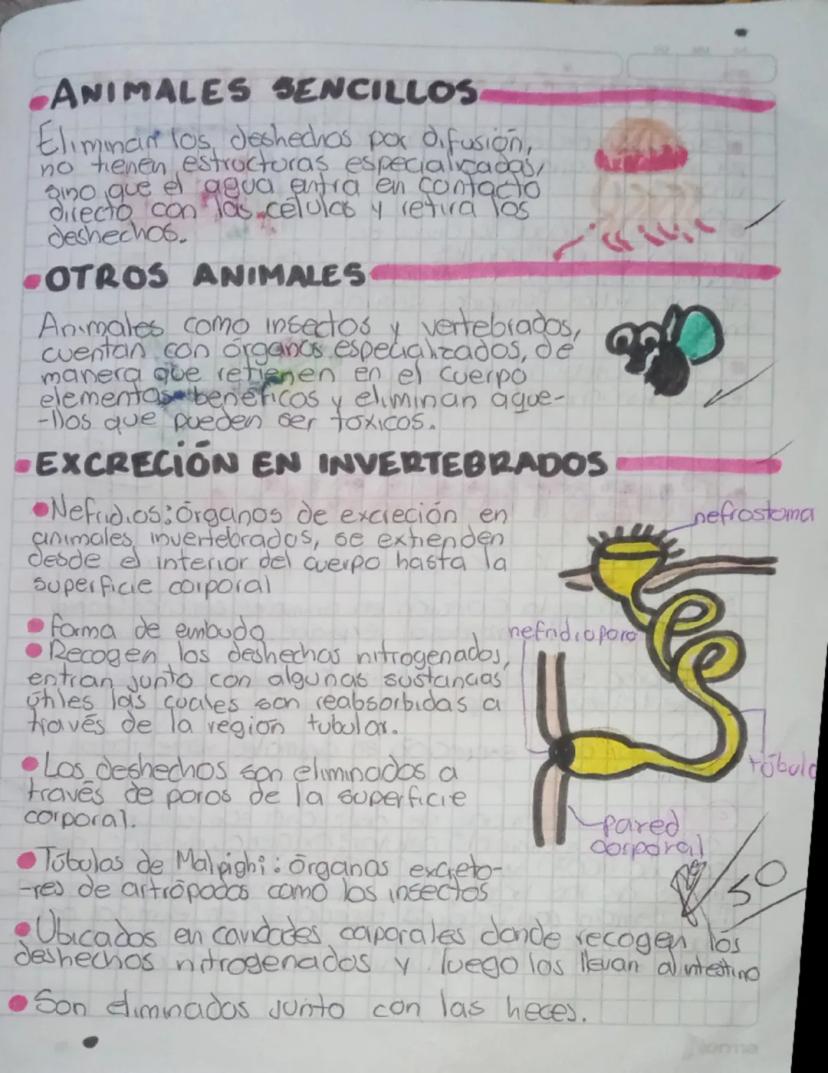 ANIMALES SENCILLOS
Eliminan los deshechos por difusión,
no tienen estructuras especializadas,
sino que el agua entra en contacto
directo con las células y retira los
deshechos.
OTROS ANIMALES
Animales como insectos y vertebrados,
cuentan con órganos especializados, de
manera que retienen en el cuerpo
elementos beneficos y eliminan aque-
-llos que pueden ser tóxicos.
EXCRECIÓN EN INVERTEBRADOS
Nefridios: órganos de excreción en
animales invertebrados, se extienden
desde el interior del cuerpo hasta la
superficie corporal
nefrostoma
forma de embudo
nefridioporo
Recogen los deshechos nitrogenados,
entran junto con algunas sustancias
útiles las cuales son reabsorbidas a
través de la region tubular.
túbulo
Los deshechos son eliminados a
través de poros de la superficie
corporal.
pared
corporal
Túbulos de Malpighi: órganos excreto-
-res de artrópodos como los insectos
50
Ubicados en cavidades caporales donde recogen los
deshechos nitrogenados y luego los llevan al intestino
Son eliminados junto con las heces.
Norma